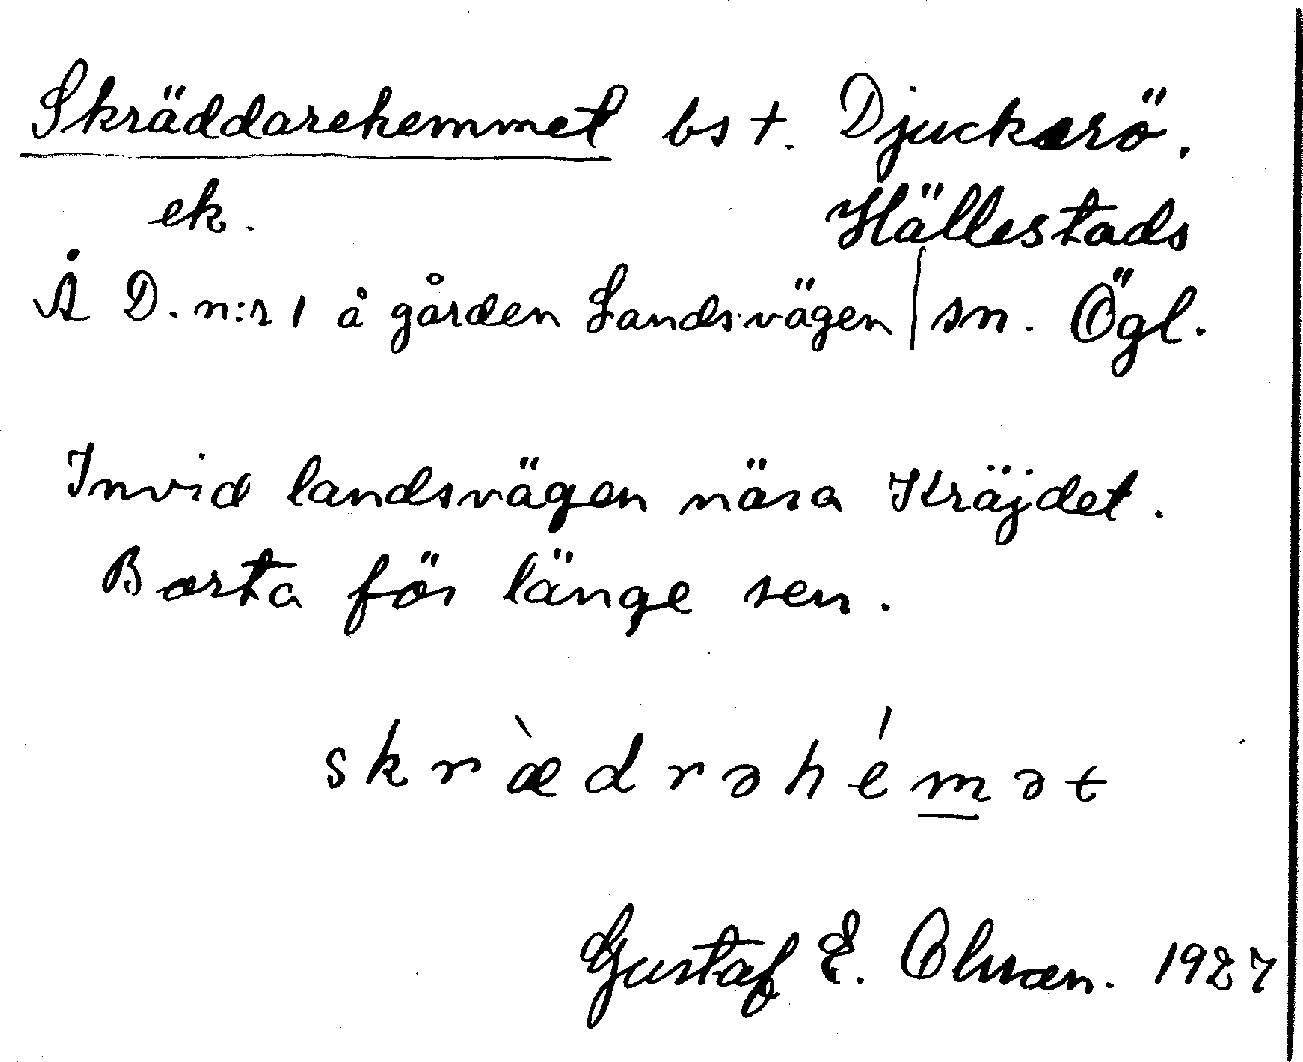 Skräddarehemmet bst. Djuckerö.
ek. Hällestads
Å D. n:r 1 å gården Landsvägen | sn. Ögl.
Invid landsvägen nära Kräjdet.
Borta för länge sen.
skrædrəhémət
Gustaf E. Olsson. 1927